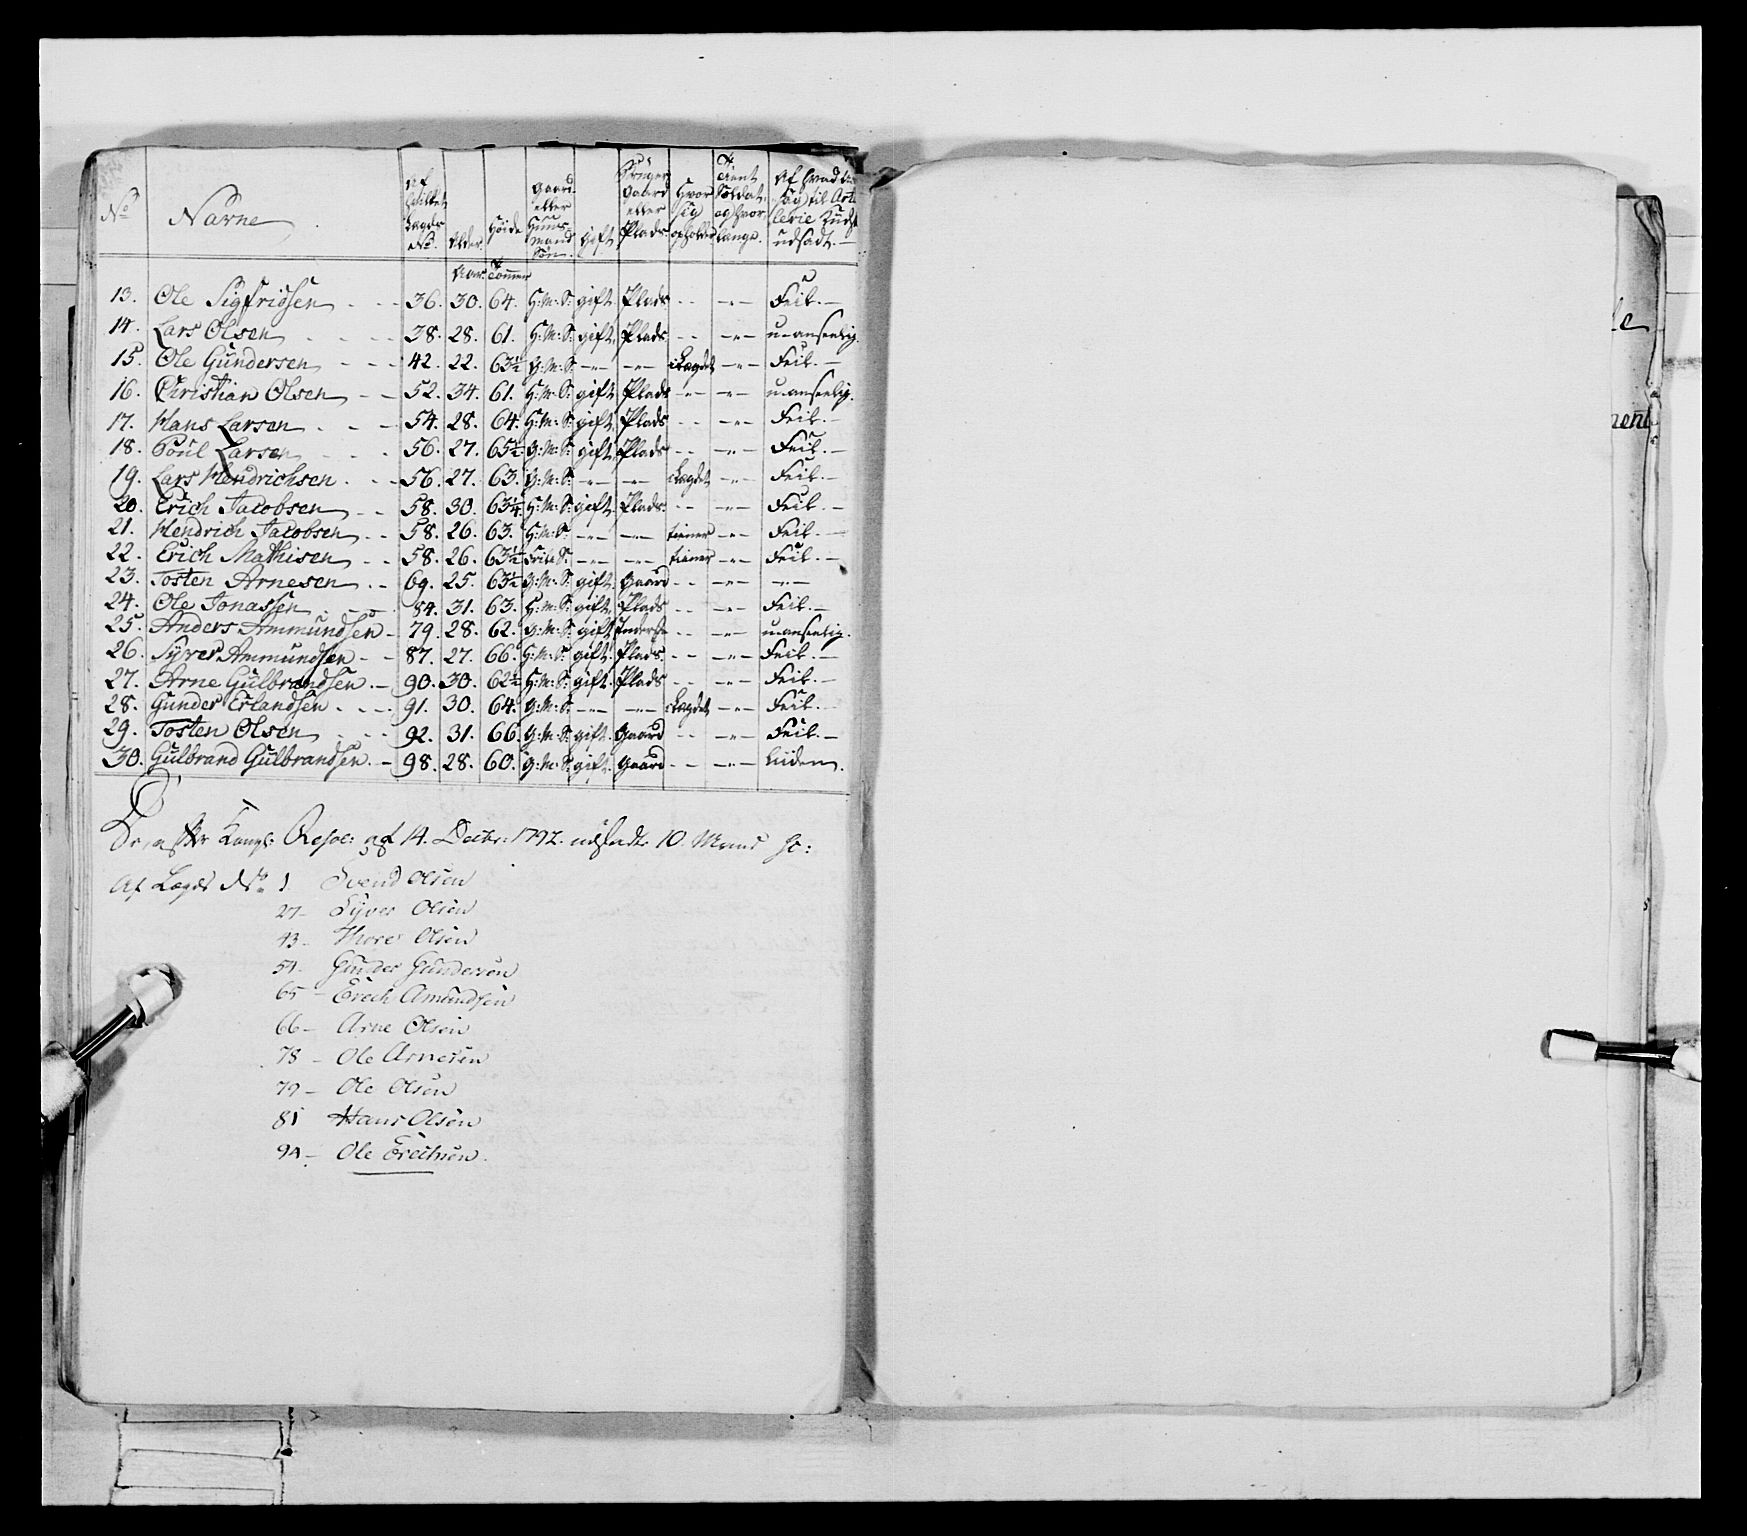 No Navne Af hvilket Lægds No. Alder. Høide Gaard eller Huusmand Søn. Gift. Bruger Gaard eller Plads. Hvor sig opholder Tient Soldat og hvor længe. Af hvad til Artillerie udsadt.
Aar. Tommer
13. Ole Sigfridsen - - - 36. 30. 64. H: M: S: gift. Plads - - - „ - Feil. -
14. Lars Olsen - - - - 38. 28. 61. H: M: S: gift. Plads - - - „ - uanseelig.
15. Ole Gundersen - - - 42. 22. 63½ G: M: S: - „ - - „ - i Lægdet - „ - Feil. -
16. Christian Olsen - - 52. 34. 61. H: M: S: gift Plads - „ - - „ - uanseelig.
17. Hans Larsen - - - 54. 28. 64. H: M: S: gift. Plads - - - „ - Feil. -
18. Poul Larsen - - - 56. 27. 65½ G: M: S: gift. Plads - - - „ - Feil. -
19. Lars Hendrichsen - - 56. 27. 63. G: M: S: - „ - - „ - i Lægdet - „ - Feil. -
20. Erich Jacobsen - - 58. 30. 63¼ H: M: S: gift. Plads - - - „ - Feil. -
21. Hendrich Jacobsen - - 58. 26. 63. H: M: S: - „ - - „ - tiener - „ - Feil. -
22. Erich Mathisen - - 58. 26. 63½ S: - „ - - „ - tiener - „ - Feil. -
23. Tosten Arnesen - - 69. 25. 63½ G: M: S: gift. Gaard - - - „ - - „ -
24. Ole Jonassen - - - 84. 31. 63. H: M: S: gift. Plads - - - „ - Feil. -
25. Anders Ammundsen - 79. 28. 62. G: M: S: gift - - - „ - uanseelig.
26. Syver Ammundsen - - 87. 27. 66. G: M: S: gift. Plads. - - - „ - Feil. -
27. Arne Gulbrandsen. - 90. 30. 62½ H: M: S: gift. Plads - - - „ - Feil. -
28. Gunder Erlandsen - - - 91. 30. 64. G: M: S. - „ - - „ - i Lægdet - „ - Feil. -
29. Tosten Olsen - - - 92. 31. 66. G: M: S: gift. Gaard - - - „ - Feil. -
30. Gulbrand Gulbrandsen. - 98. 28. 60. G: M: S: gift. Gaard - - - „ - liiden.
efter Resol: af 14. Decbr: 1792. udsadte 10. Mand
Af Lægds No 1 Svend Olsen
27 - Syver Olsen
43 - Thore Olsen
54 - Gunder Gundersen
65 - Erich Amundsen
66 - Arne Olsen
78 - Ole Arnesen
79 - Ole Olsen
81 Hans Olsen
94 - Ole Erichsen.